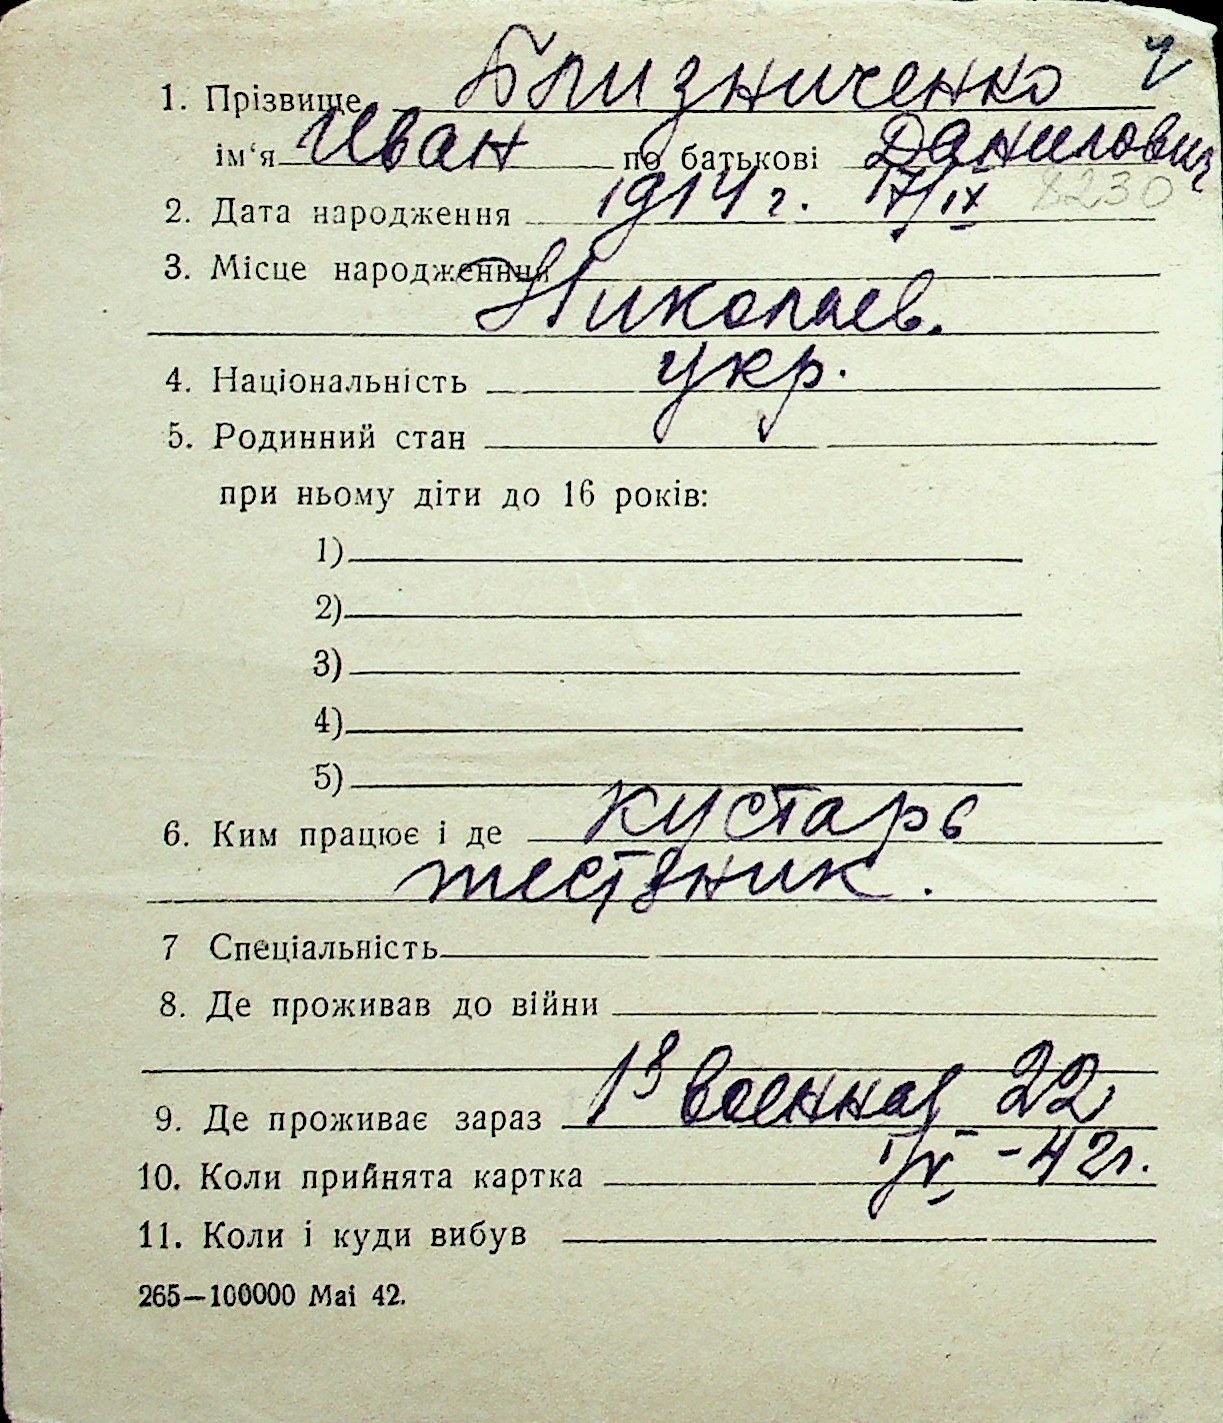 1. Прізвище Близниченко
ім'я Иван по батькові Данилович
2. Дата народження 1914 г. 17/IX 8230
3. Місце народження
Николаев.
4. Національність укр.
5. Родинний стан
при ньому діти до 16 років:
1)
2)
3)
4)
5)
6. Ким працює і де кустарь
жестяник.
7 Спеціальність
8. Де проживав до війни
9. Де проживає зараз 13 военная 22
10. Коли прийнята картка 1/V -42г.
11. Коли і куди вибув
265—100000 Mai 42.